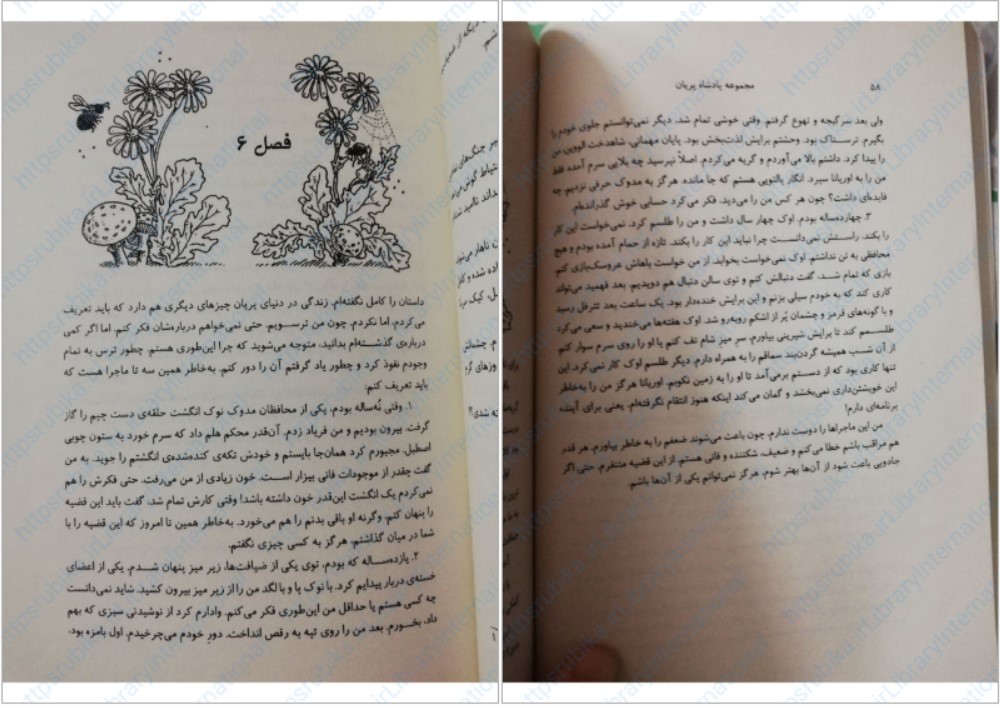 فصل ۶
داستان را کامل نگفته‌ام. زندگی در دنیای پریان چیزهای دیگری هم دارد که باید تعریف
می‌کردم، اما نکردم. چون من ترسویم. حتی نمی‌خواهم درباره‌شان فکر کنم. اما اگر کمی
درباره‌ی گذشته‌ام بدانید، متوجه می‌شوید که چرا این‌طوری هستم. چطور ترس به تمام
وجودم نفوذ کرد و چطور یاد گرفتم آن را دور کنم. به‌خاطر همین سه تا ماجرا هست که
باید تعریف کنم:
۱. وقتی نُه‌ساله بودم، یکی از محافظان مدوک نوک انگشت حلقه‌ی دست چپم را گاز
گرفت. بیرون بودیم و من فریاد زدم. آن‌قدر محکم هلم داد که سرم خورد به ستون چوبی
اصطبل. مجبورم کرد همان‌جا بایستم و خودش تکه‌ی کنده‌شده‌ی انگشتم را جوید. به من
گفت چقدر از موجودات فانی بیزار است. خون زیادی از من می‌رفت. حتی فکرش را هم
نمی‌کردم یک انگشت این‌قدر خون داشته باشد! وقتی کارش تمام شد، گفت باید این قضیه
را پنهان کنم، وگرنه او باقی بدنم را هم می‌خورد. به‌خاطر همین تا امروز که این قضیه را با
شما در میان گذاشتم، هرگز به کسی چیزی نگفتم.
۲. یازده‌ساله که بودم، توی یکی از ضیافت‌ها، زیر میز پنهان شدم. یکی از اعضای
خسته‌ی دربار پیدایم کرد. با نوک پا و با لگد من را از زیر میز بیرون کشید. شاید نمی‌دانست
چه کسی هستم یا حداقل من این‌طوری فکر می‌کنم. وادارم کرد از نوشیدنی سبزی که بهم
داد، بخورم. بعد من را روی تپه به رقص انداخت. دورِ خودم می‌چرخیدم. اول بامزه بود،
۵۸
مجموعه پادشاه پریان
ولی بعد سرگیجه و تهوع گرفتم. وقتی خوشی تمام شد، دیگر نمی‌توانستم جلوی خودم را
بگیرم. ترسناک بود. وحشتم برایش لذت‌بخش بود. پایان مهمانی، شاهدخت الووین من
را پیدا کرد. داشتم بالا می‌آوردم و گریه می‌کردم. اصلاً نپرسید چه بلایی سرم آمده فقط
من را به اوریانا سپرد. انگار پالتویی هستم که جا مانده. هرگز به مدوک حرفی نزدیم. چه
فایده‌ای داشت؟ چون هر کس من را می‌دید، فکر می‌کرد حسابی خوش گذرانده‌ام.
۳. چهارده‌ساله بودم. اوک چهار سال داشت و من را طلسم کرد. نمی‌خواست این کار
را بکند. راستش نمی‌دانست چرا نباید این کار را بکند. تازه از حمام آمده بودم و هیچ
محافظی به تن نداشتم. اوک نمی‌خواست بخوابد. از من خواست باهاش عروسک‌بازی کنم.
بازی که تمام شد، گفت دنبالش کنم و توی سالن دنبال هم دویدیم. بعد فهمید می‌تواند
کاری کند که به خودم سیلی بزنم و این برایش خنده‌دار بود. یک ساعت بعد تترفل رسید
و با گونه‌های قرمز و چشمان پُر از اشکم روبه‌رو شد. اوک هفته‌ها می‌خندید و سعی می‌کرد
طلسمم کند تا برایش شیرینی بیاورم، سرِ میز شام تف کنم یا او را روی سرم سوار کنم.
از آن شب همیشه گردن‌بند سماقم را به همراه دارم. دیگر طلسم اوک کار نمی‌کرد. این
تنها کاری بود که از دستم برمی‌آمد تا او را به زمین نکوبم. اوریانا هرگز من را به‌خاطر
این خویشتن‌داری نمی‌بخشد و گمان می‌کند اینکه هنوز انتقام نگرفته‌ام، یعنی برای آینده
برنامه‌ای دارم!
من این ماجراها را دوست ندارم، چون باعث می‌شوند ضعفم را به خاطر بیاورم. هر قدر
هم مراقب باشم خطا می‌کنم و ضعیف، شکننده و فانی هستم. از این قضیه متنفرم. حتی اگر
جادویی باعث شود از آن‌ها بهتر شوم، هرگز نمی‌توانم یکی از آن‌ها باشم.